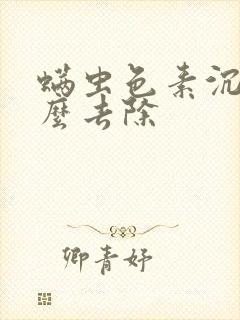 螨虫色素沉
麽去除
卿青妤